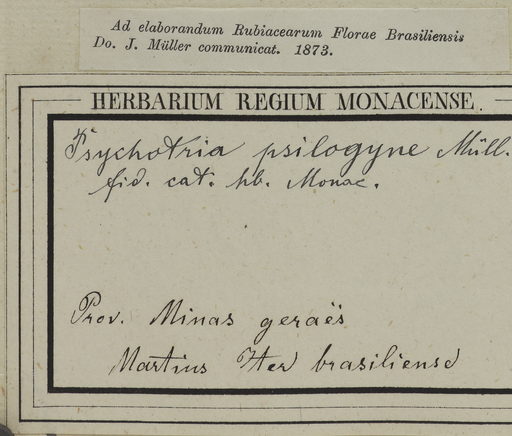 Ad elaborandum Rubiacearum Florae Brasiliensis
Do. J. Müller communicat. 1873.
HERBARIUM REGIUM MONACENSE.
Psychotria psilogyne Müll.
fid. cat. hb. Monac.
Prov. Minas geraës
Martius Iter brasiliense